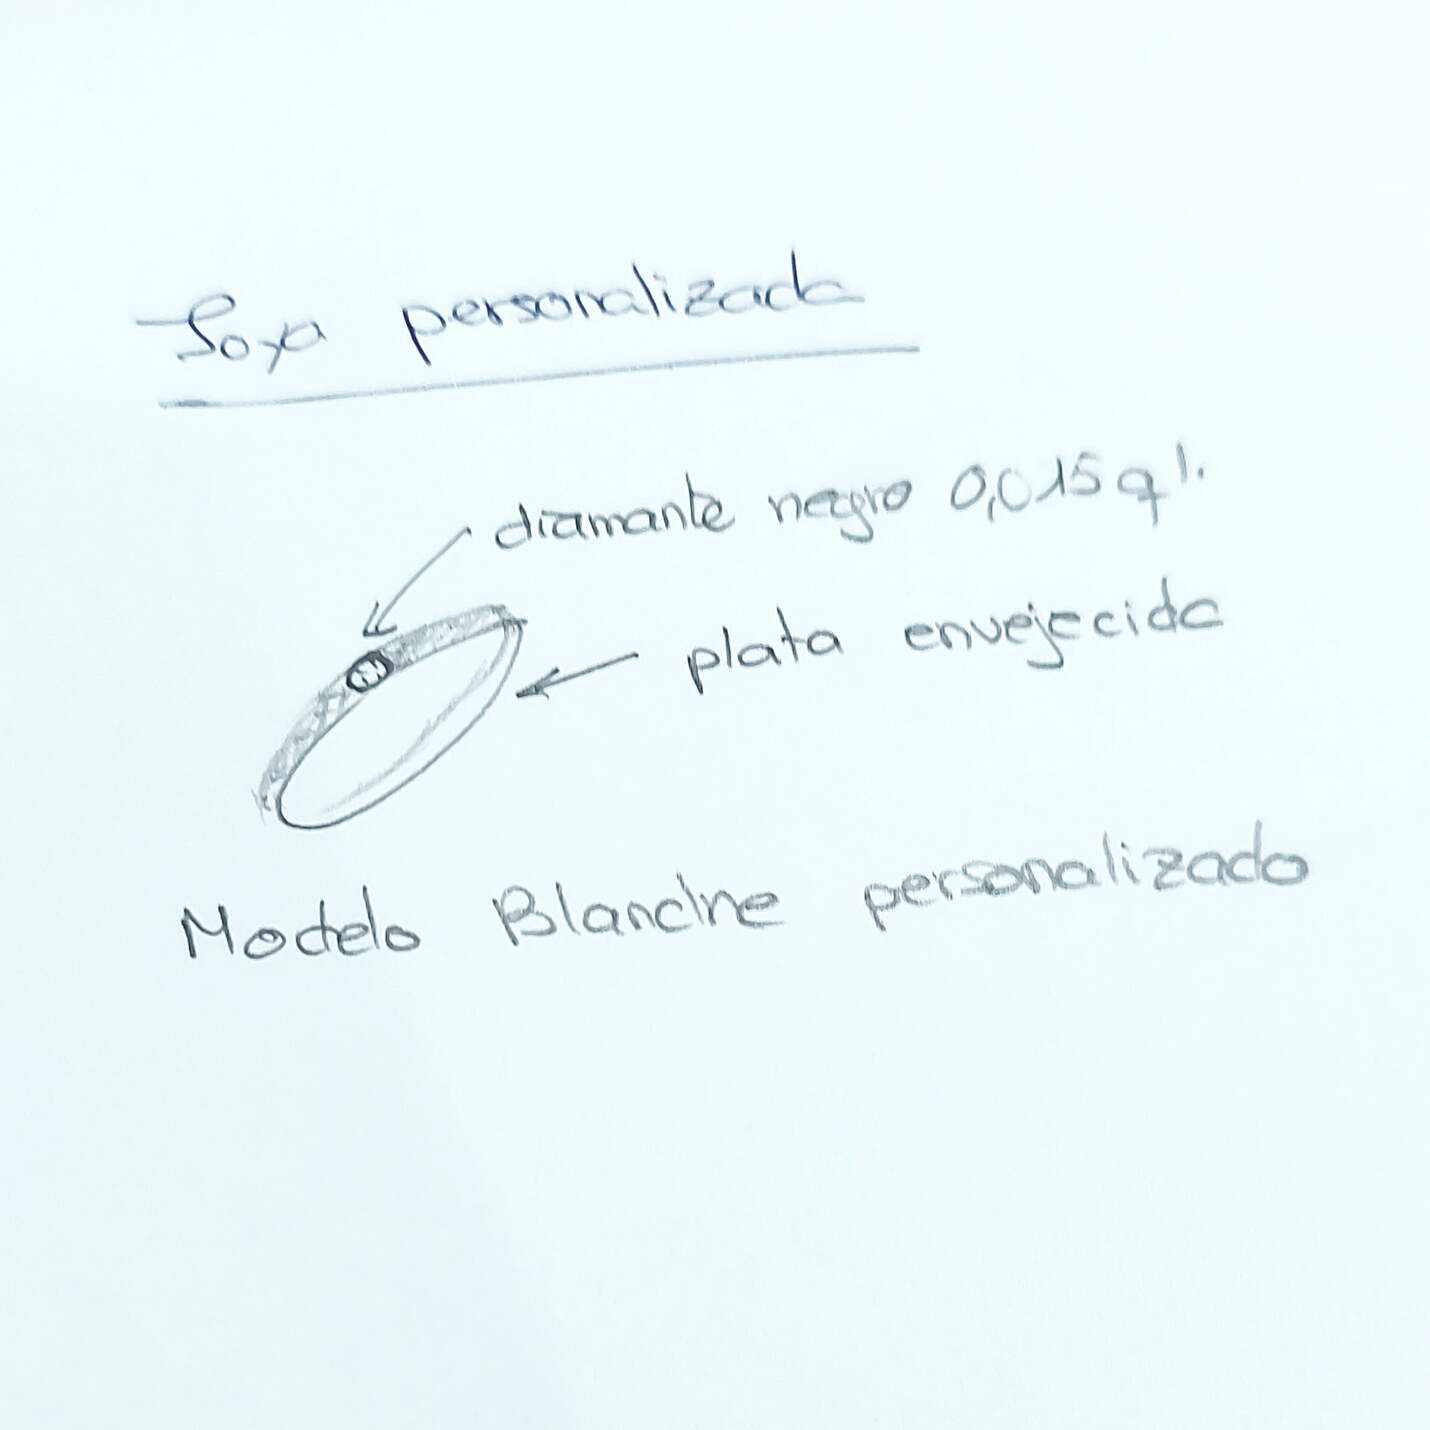 Joya personalizada
diamante negro 0,015 ql.
plata envejecida
Modelo Blanche personalizado